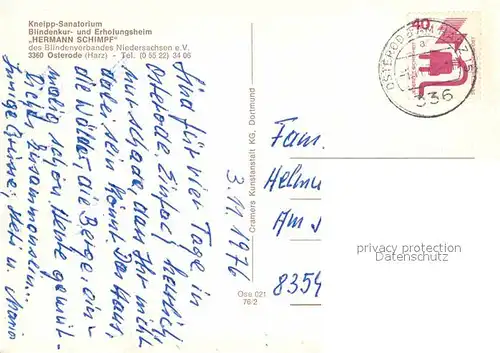 Kneipp-Sanatorium
Blindenkur- und Erholungsheim
„HERMANN SCHIMPF"
des Blindenverbandes Niedersachsen e.V.
3360 Osterode (Harz) - Tel. (0 55 22) 34 06
Sind für vier Tage in
Osterode. Einfach herrlich,
nur schade, daß Ihr nicht
dabei sein könnt. Das Haus,
die Wälder, die Berge, ein-
malig schön. Heute gemüt-
liches Zusammensein.
Innige Grüsse, u. Maria
3.11.1976
Cramers Kunstanstalt KG, Dortmund
Ose 021
76/2
40
OSTERODE AM HARZ
336
Fam.
Helmu
Am
8354
privacy protection
Datenschutz